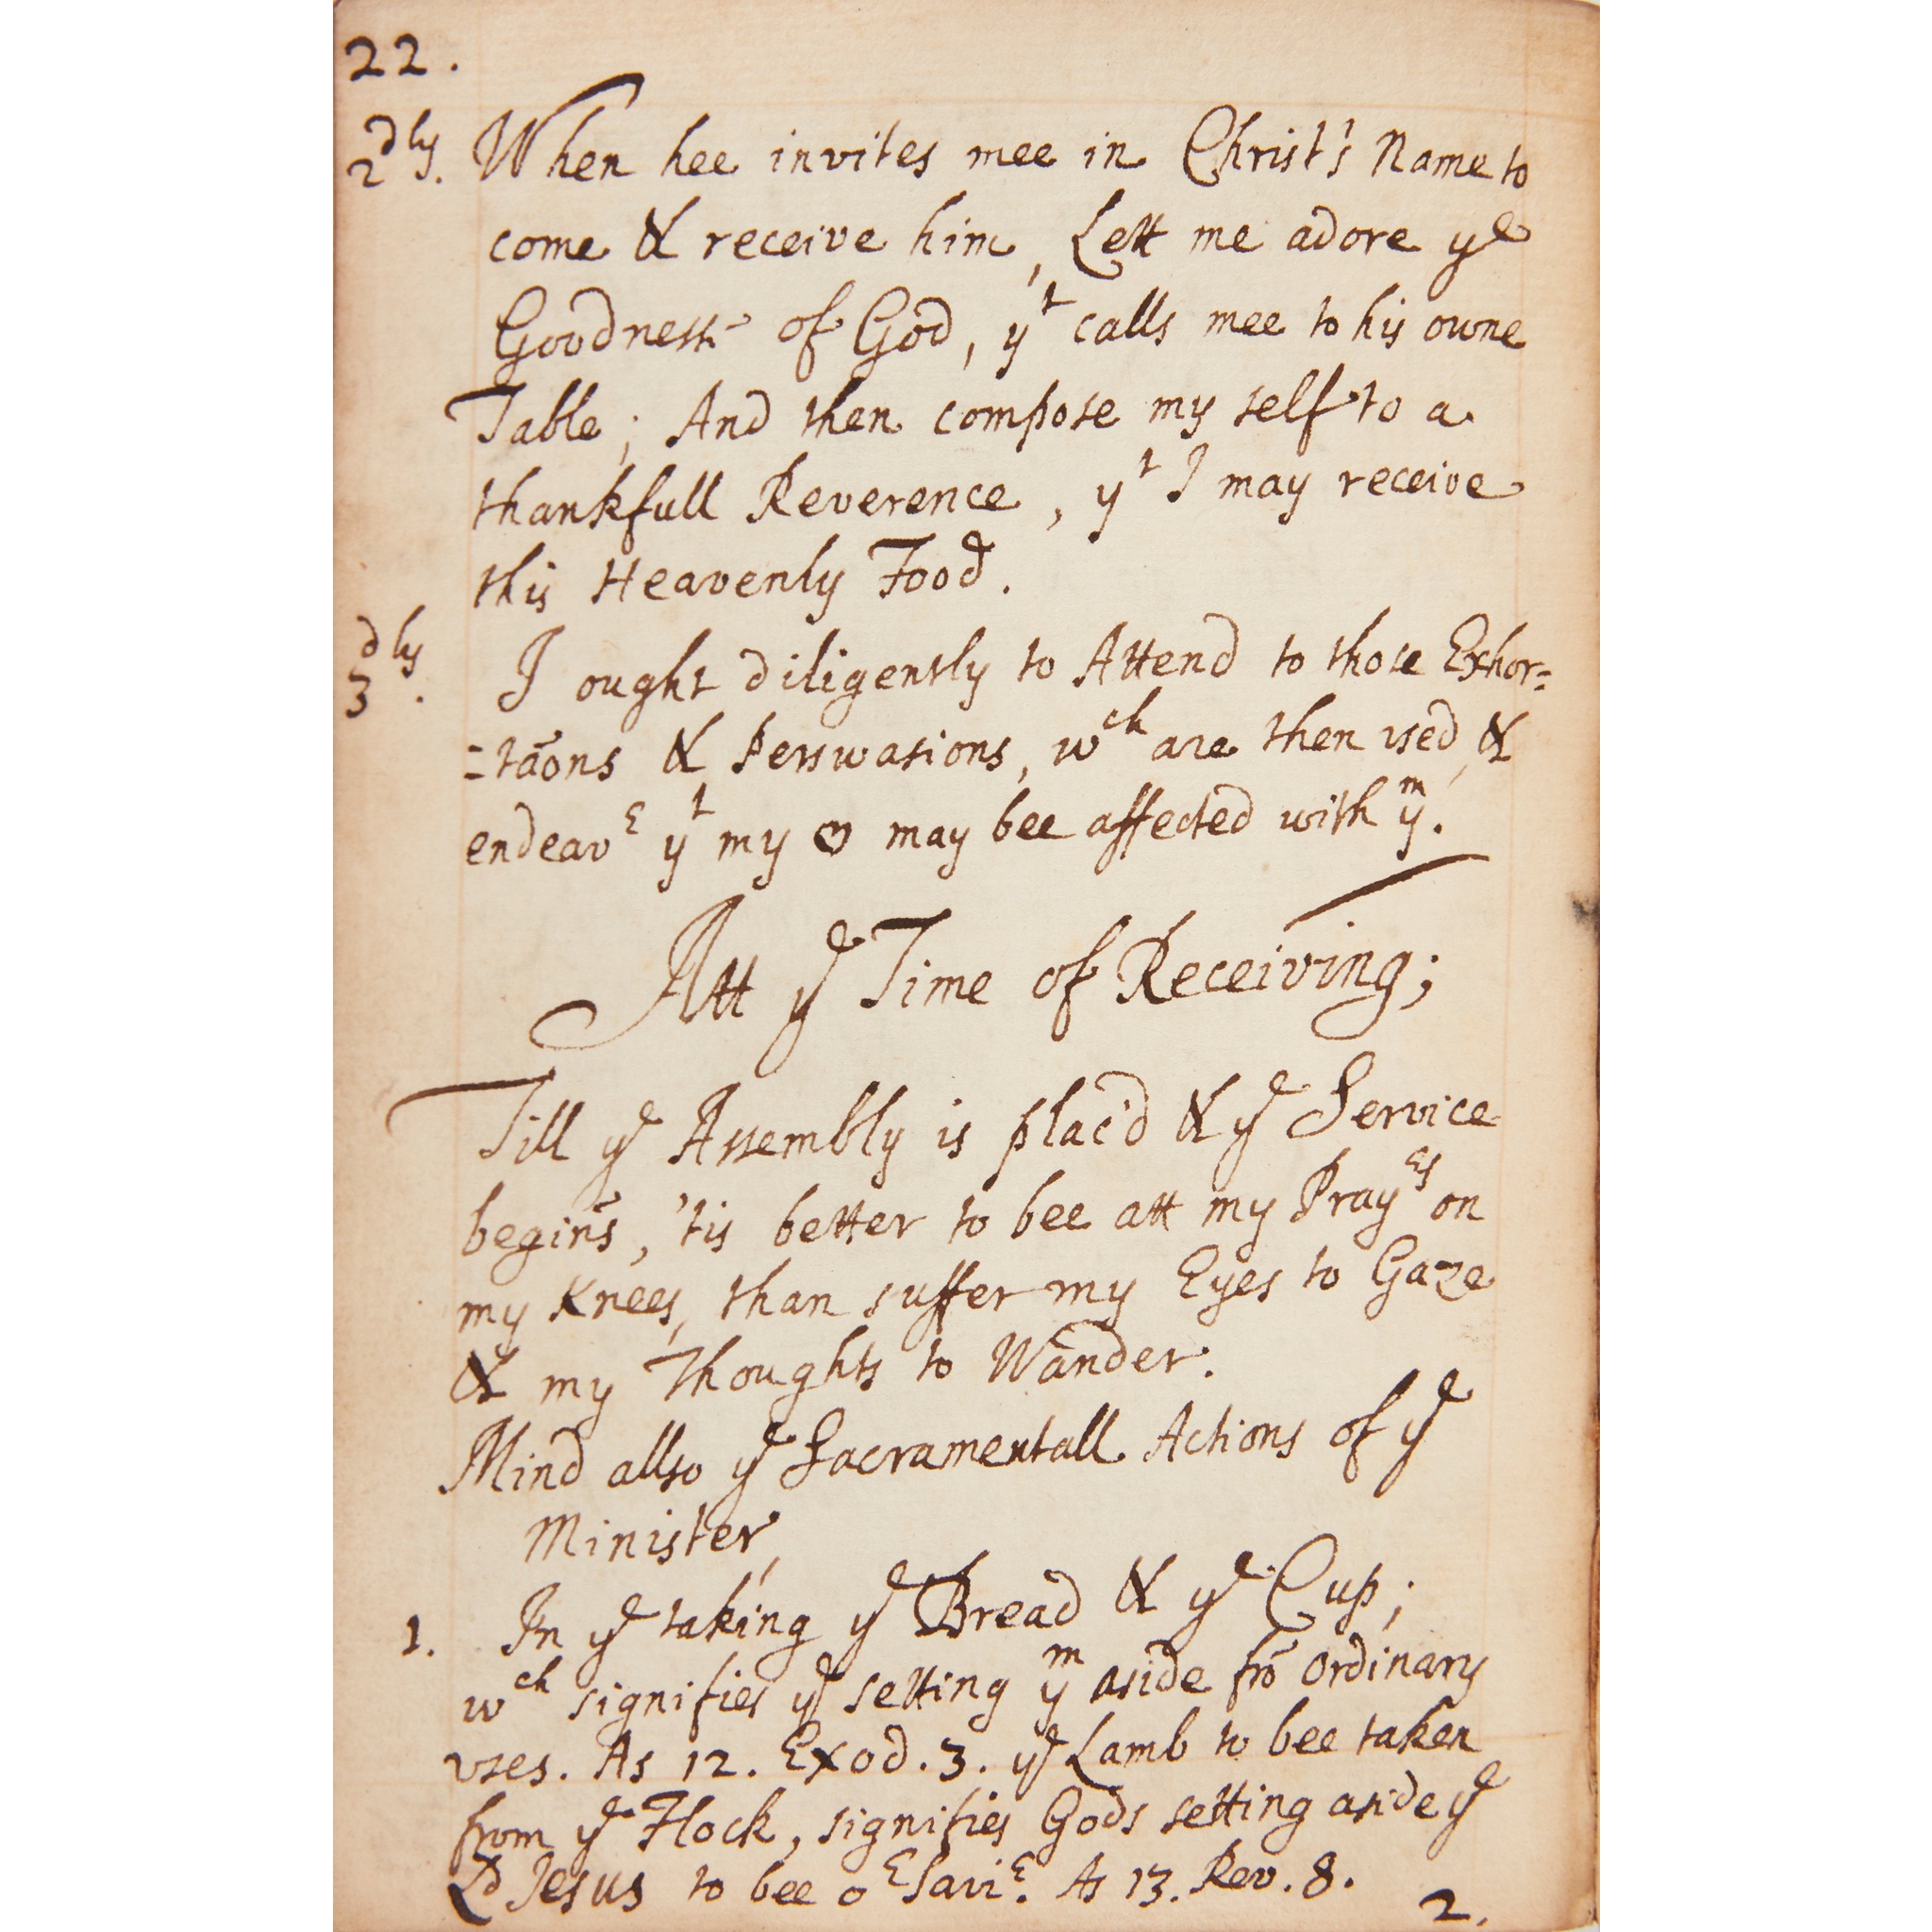 22.
2dly. When hee invites mee in Christ's Name to
come & receive him, Lett me adore ye
Goodness of God, yt calls mee to his owne
Table; And then compose my self to a
thankfull Reverence, yt I may receive
this Heavenly Food.
3dly. I ought diligently to Attend to those Exhor=
=tāons & Perswasions, wch are then vsed, &
endeavr yt my ♡ may bee affected with ym.
Att ye Time of Receiving;
Till ye Assembly is plac'd & ye Service
begins, 'tis better to bee att my Prayrs on
my Knees, than suffer my Eyes to Gaze
& my Thoughts to Wander.
Mind allso ye Sacramentall Actions of ye
Minister,
1. In ye taking ye Bread & ye Cup;
wch signifies ye setting ym aside frō ordinary
vses. As 12. Exod. 3. ye Lamb to bee taken
from ye Flock, signifies Gods setting aside ye
Ld Jesus to bee or Savir. As 13. Rev. 8.
2.